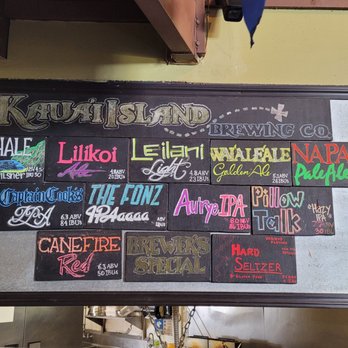 KAUA'I ISLAND
BREWING CO.
Lilikoi
Ale
Leilani
Light
WAI'ALE'ALE
Golden Ale
NAPA
Pale Ale
Captain Cook's
IPA
6.3 ABV
84 IBU
THE FONZ
IPAaaaa
Autyp IPA
Pillow
Talk
Hazy
IPA
CANEFIRE
Red
6.5 ABV
50 IBU's
BREWER'S
SPECIAL
HARD
SELTZER